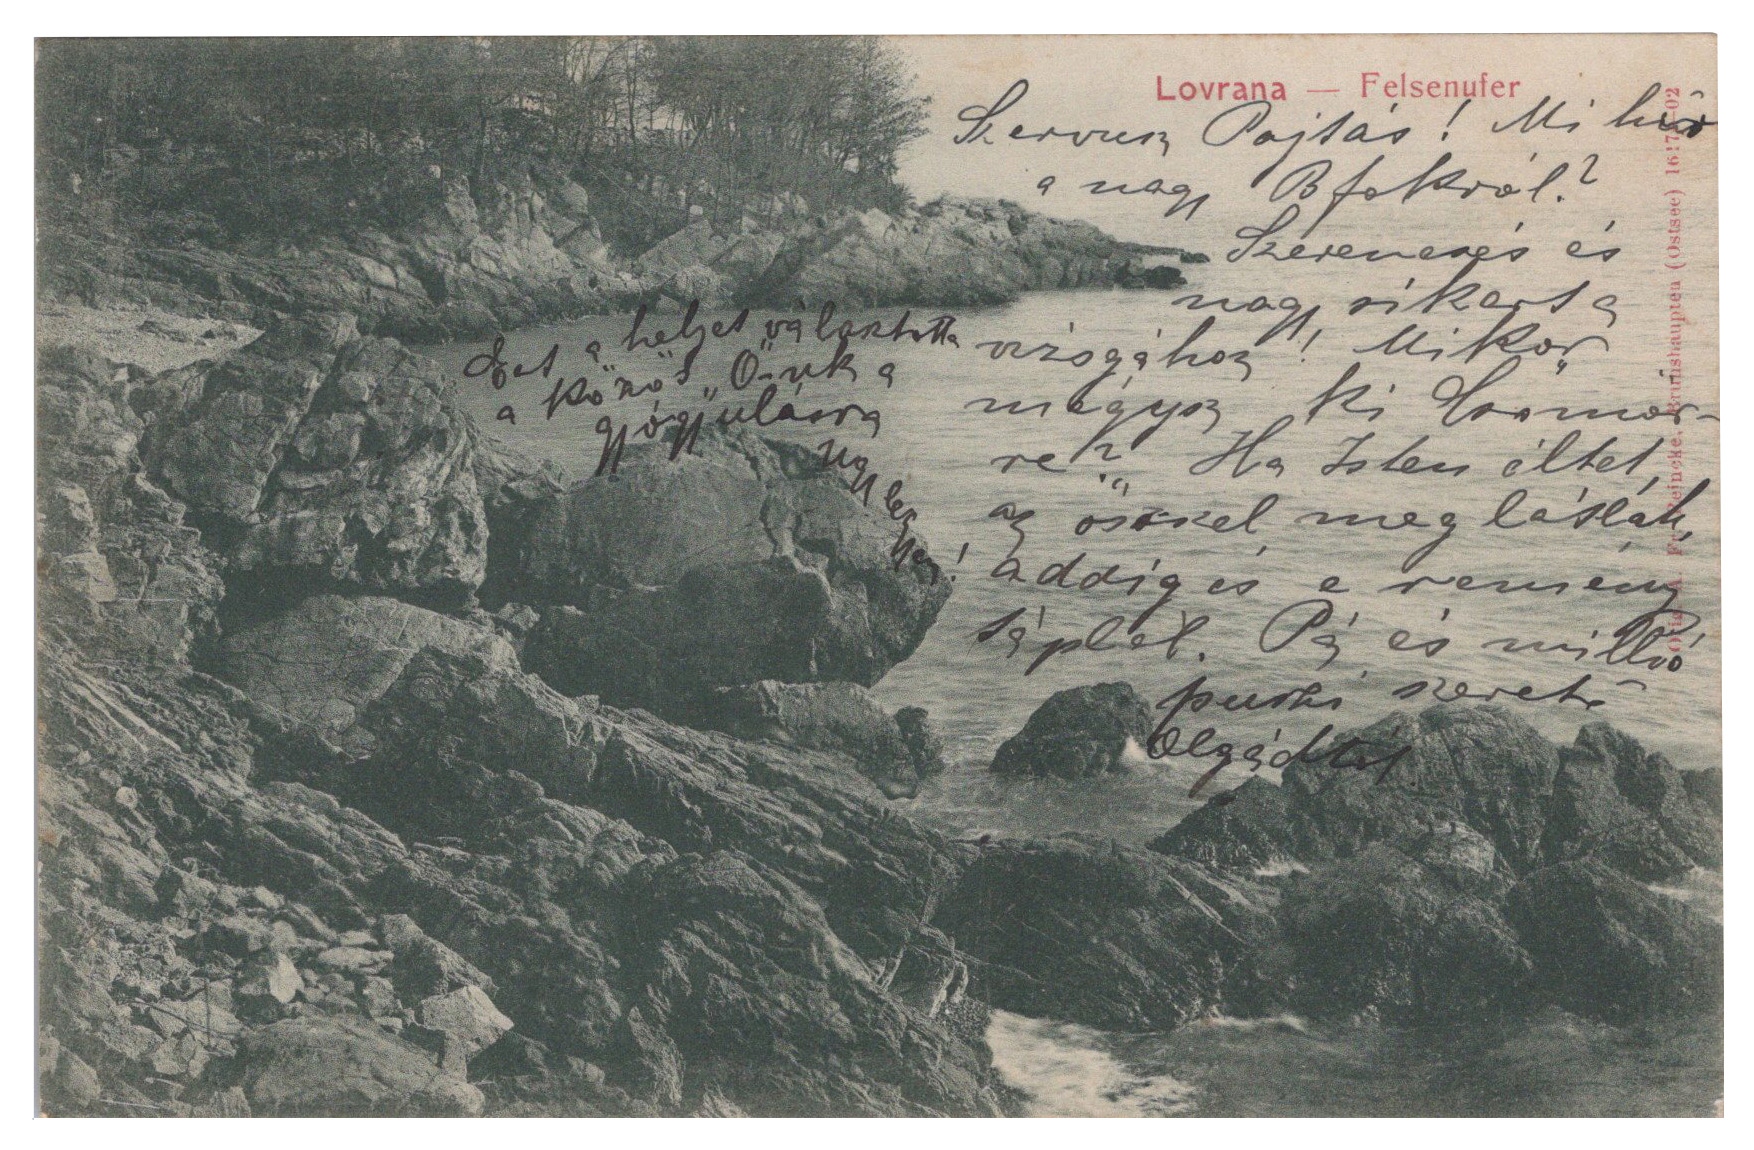 Lovrana — Felsenufer
Szervusz Pajtás! Mi hír
a nagy Bfokról?
Szerencsés és
nagy sikert a
vizsgához! Mikor
mégysz ki Gromor-
re? Ha Isten éltet,
az ősszel meg látlak,
addig és e remény
táplál. Pá és millió
puszi szerető
Olgádtól.
Ezt a helyet választotta
a közös „Ő"-nk a
gyógyulásra
Úgy legyen!
Orig. A. Freincke, Brunshaupten (Ostsee) 02